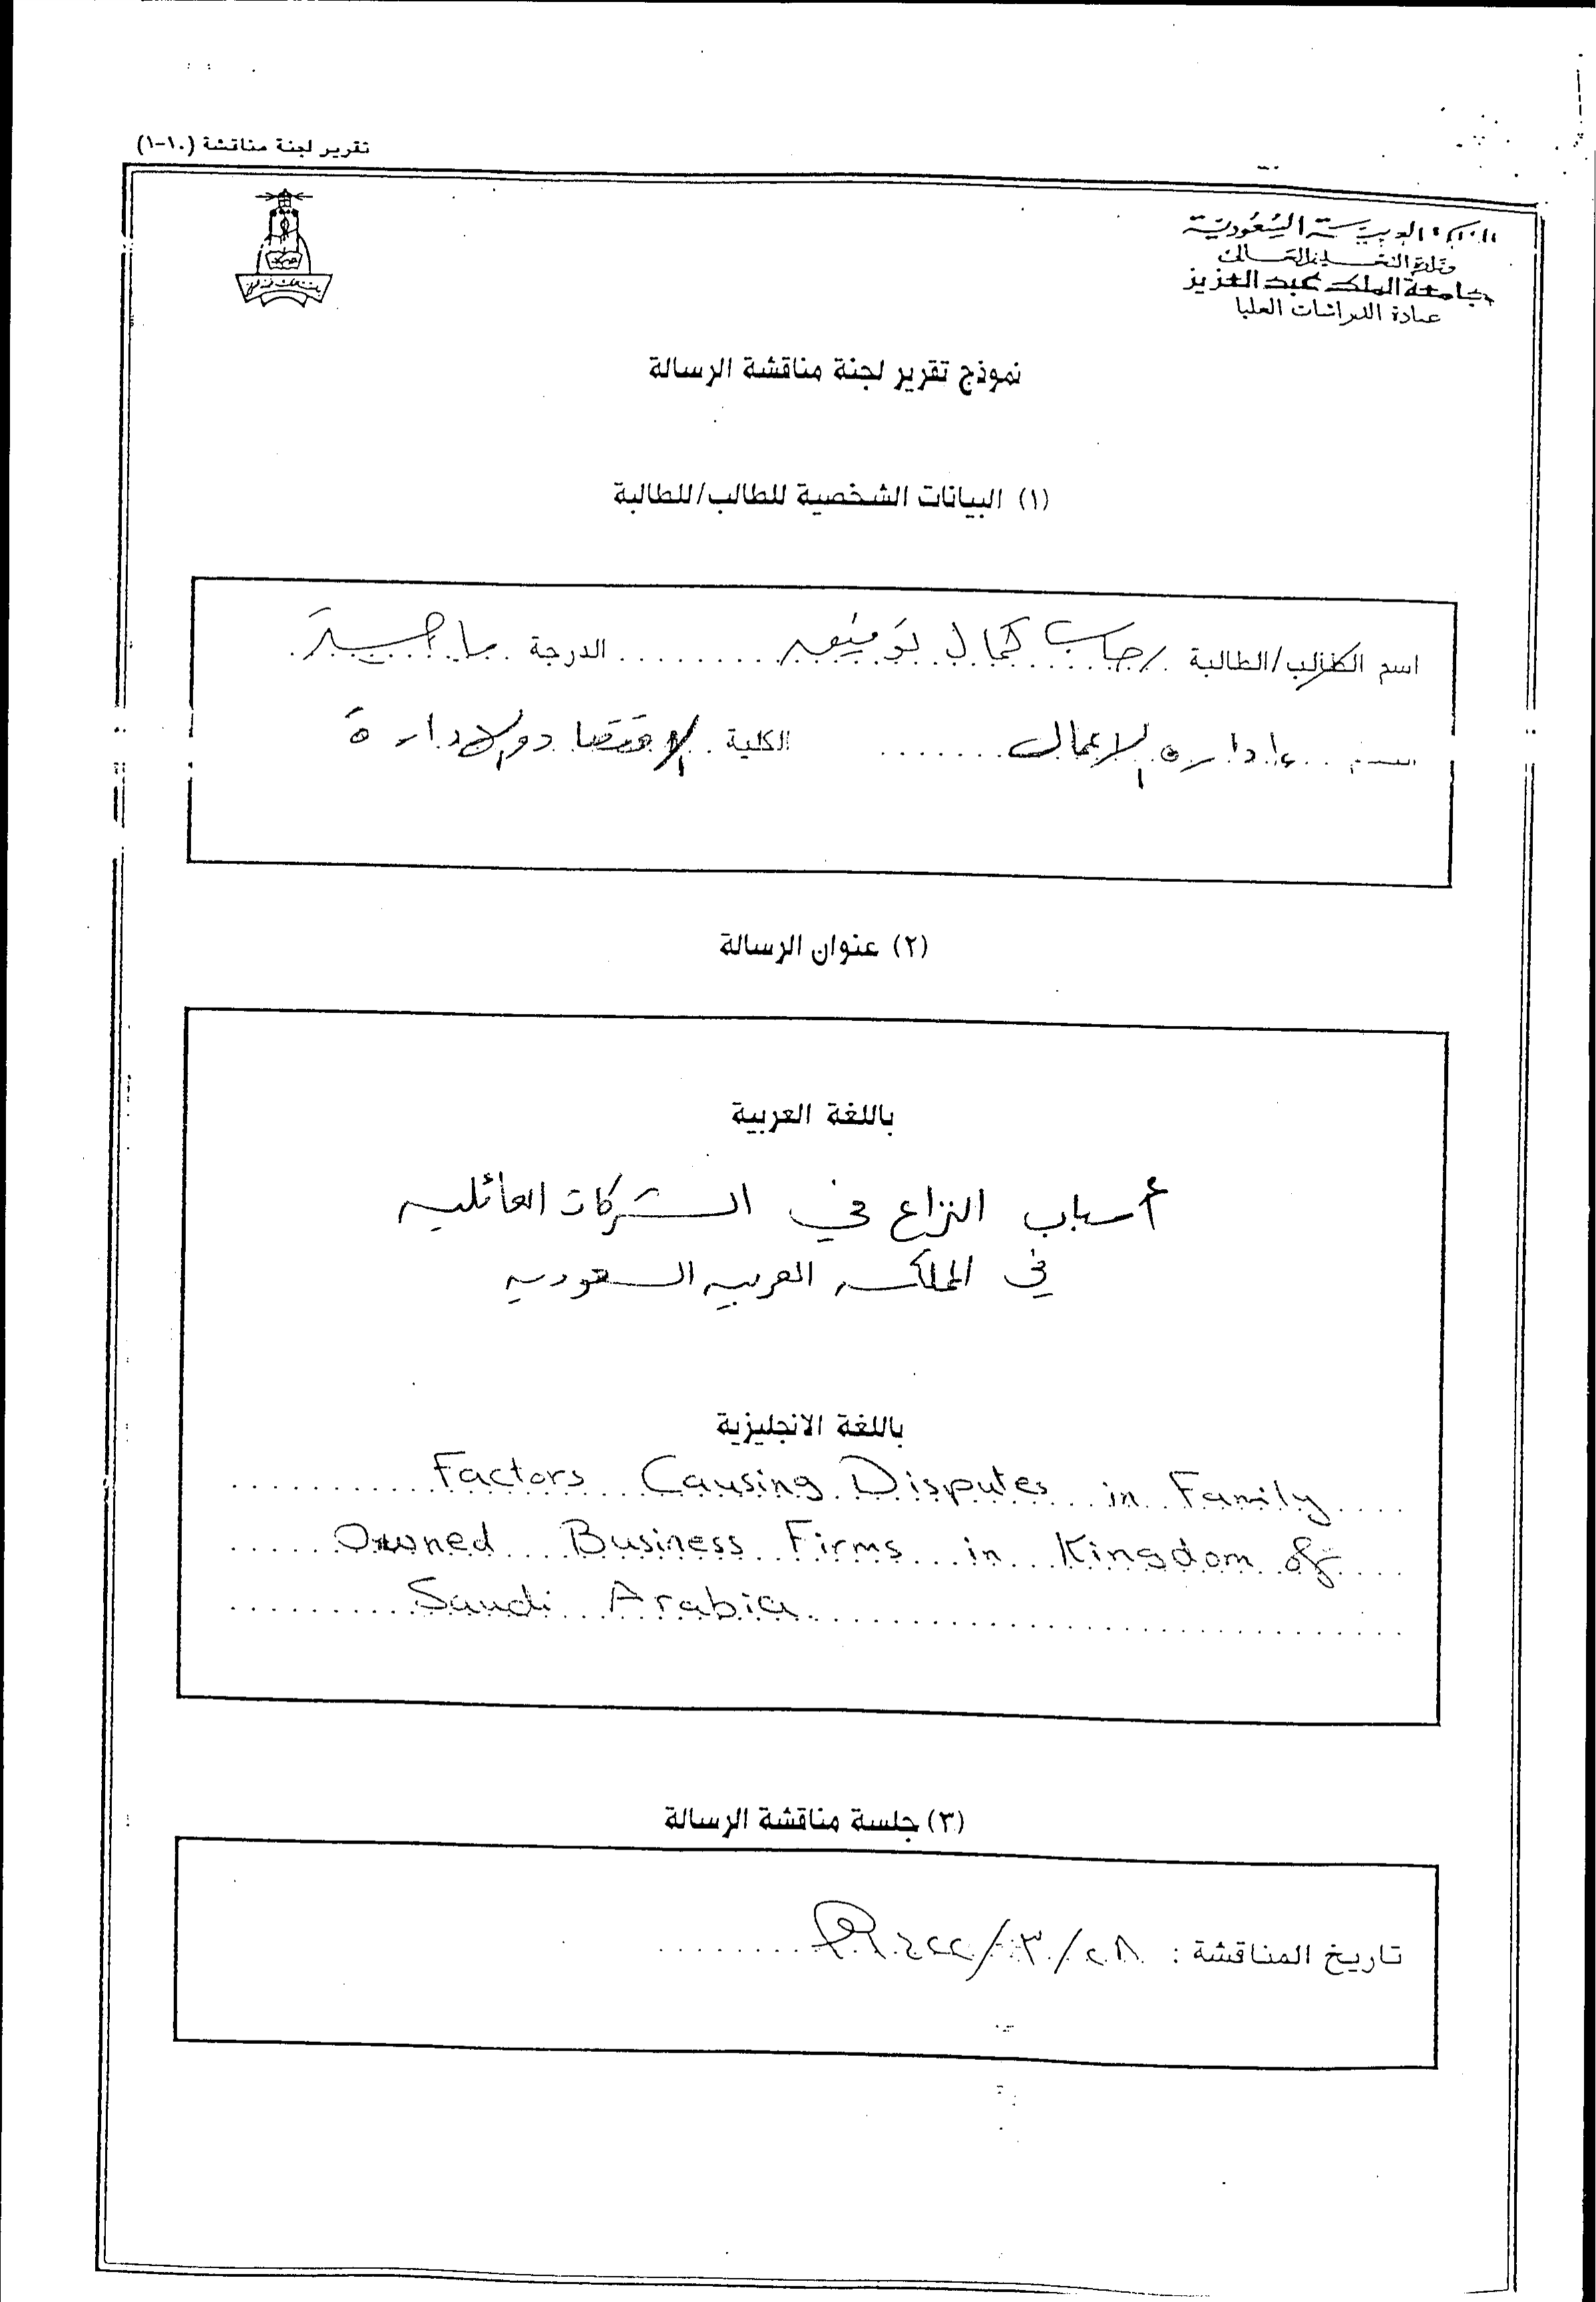 تقرير لجنة مناقشة (١٠-١)
المملكة العربية السعودية
وزارة التعليم العالي
جامعة الملك عبد العزيز
عمادة الدراسات العليا
نموذج تقرير لجنة مناقشة الرسالة
(١) البيانات الشخصية للطالب/للطالبة
اسم الطالب/الطالبة رحاب كمال توفيق الدرجة ماجستير
القسم ادارة الاعمال الكلية الاقتصاد والادارة
(٢) عنوان الرسالة
باللغة العربية
أسباب النزاع في الشركات العائليه
في المملكه العربيه السعوديه
باللغة الانجليزية
Factors Causing Disputes in Family
Owned Business Firms in Kingdom of
Saudi Arabia
(٣) جلسة مناقشة الرسالة
تاريخ المناقشة : ٢٨/٣/